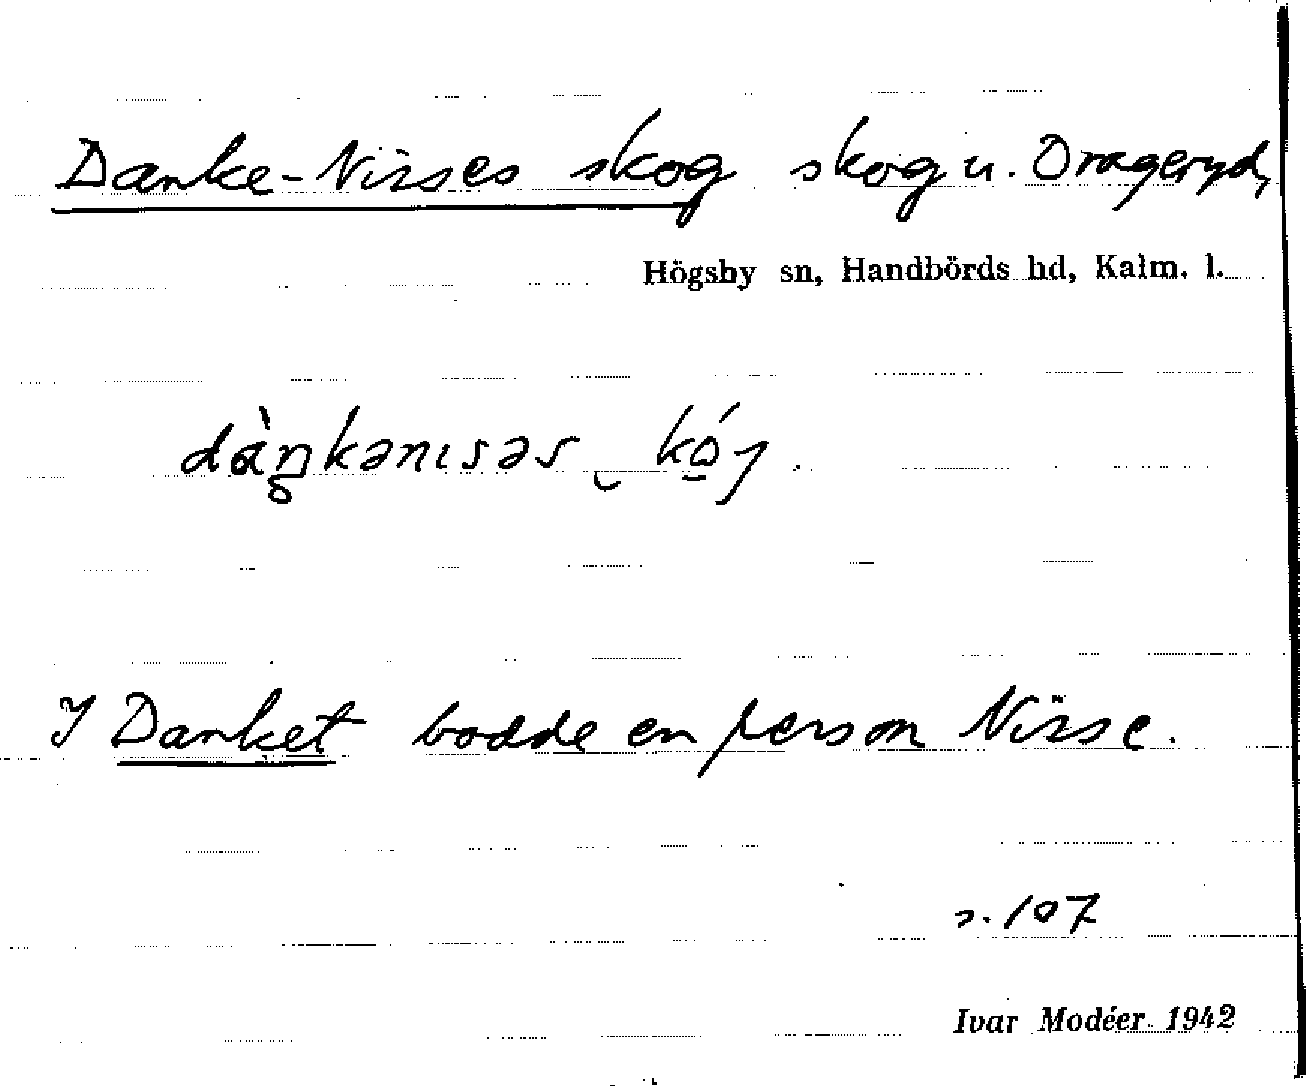 Danke-Nisses skog skog u. Drageryd,
Högsby sn, Handbörds hd, Kalm. l.
dàŋkənɩsəs ̮ kǫ́ɟ.
I Danket bodde en person Nisse.
s. 107
Ivar Modéer 1942